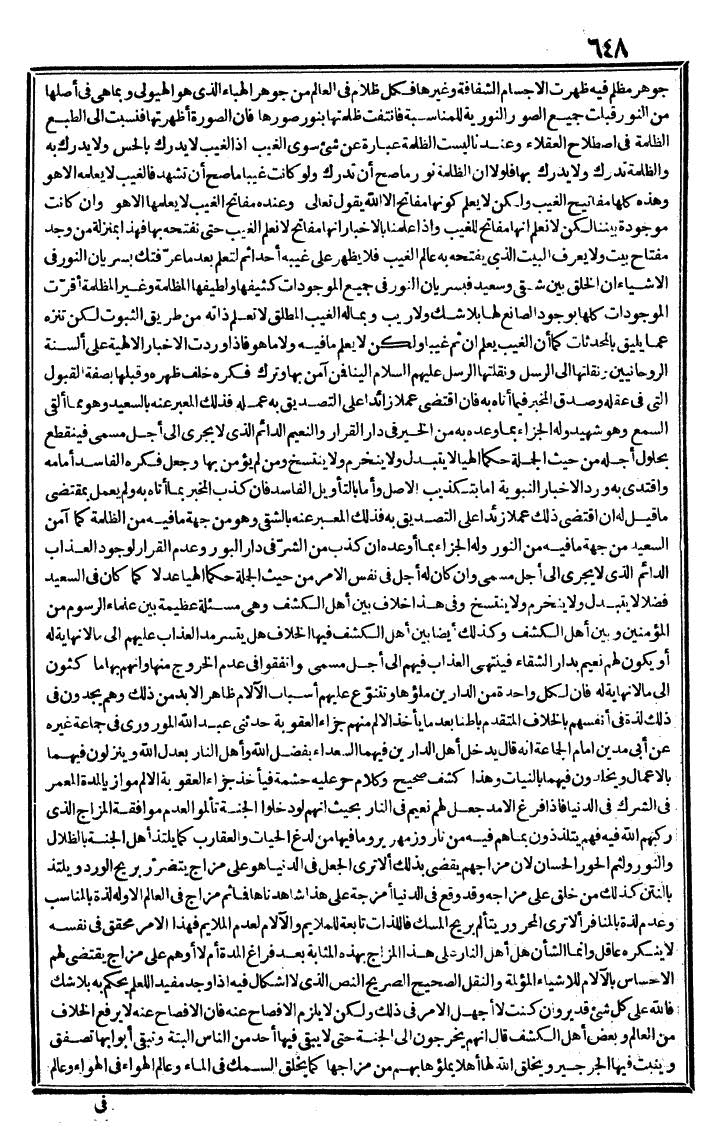 ٦٤٨
جوهر مظلم فيه ظهرت الاجسام الشفافة وغيرها فكل ظلام فى العالم من جوهر الهباء الذى هو الهيولى وبماهى فى أصلها
من النور قبلت جميع الصور النورية للمناسبة فانتفت ظلمتها بنور صورها فان الصورة أظهرتها فنسبت الى الطبع
الظلمة فى اصطلاح العقلاء وعندنا ليست الظلمة عبارة عن شئ سوى الغيب اذ الغيب لا يدرك بالحس ولا يدرك به
والظلمة تدرك ولا يدرك بها فلولا ان الظلمة نور ما صح أن تدرك ولو كانت غيبا ما صح أن تشهد فالغيب لا يعلمه الاهو
وهذه كلها مفاتيح الغيب ولكن لا يعلم كونها مفاتح الا الله يقول تعالى وعنده مفاتح الغيب لا يعلمها الاهو وان كانت
موجودة بيننا لكن لا نعلم انها مفاتح للغيب واذا علمنا بالاخبار انها مفاتح لا نعلم الغيب حتى نفتحه بها فهذا بمنزلة من وجد
مفتاح بيت ولا يعرف البيت الذى يفتحه به عالم الغيب فلا يظهر على غيبه أحدا ثم لتعلم بعد ما عرفتك بسريان النور فى
الاشياء ان الخلق بين شقى وسعيد فبسريان النور فى جميع الموجودات كثيفها ولطيفها المظلمة وغير المظلمة أقرت
الموجودات كلها بوجود الصانع لها بلا شك ولا ريب وبماله الغيب المطلق لا تعلم ذاته من طريق الثبوت لكن تنزه
عما يليق بالمحدثات كما أن الغيب يعلم ان ثم غيبا ولكن لا يعلم ما فيه ولا ما هو فاذا وردت الاخبار الالهية على ألسنة
الروحانيين ونقلتها الى الرسل ونقلتها الرسل عليهم السلام الينا فمن آمن بها وترك فكره خلف ظهره وقبلها بصفة القبول
التى فى عقله وصدق المخبر فيما أتاه به فان اقتضى عملا زائدا على التصديق به عمله فذلك المعبر عنه بالسعيد وهو ممن ألقى
السمع وهو شهيد وله الجزاء بما وعده به من الخير فى دار القرار والنعيم الدائم الذى لا يجرى الى أجل مسمى فينقطع
بحلول أجله من حيث الجملة حكما الهيا لا يتبدل ولا ينخرم ولا ينتسخ ومن لم يؤمن بها وجعل فكره الفاسد أمامه
واقتدى به ورد الاخبار النبوية اما بتكذيب الاصل واما بالتأويل الفاسد فان كذب المخبر بما أتاه به ولم يعمل بمقتضى
ما قيل له ان اقتضى ذلك عملا زائدا على التصديق به فذلك المعبر عنه بالشقى وهو من جهة ما فيه من الظلمة كما آمن
السعيد من جهة ما فيه من النور وله الجزاء بما أوعده ان كذب من الشر فى دار البور وعدم القرار لوجود العذاب
الدائم الذى لا يجرى الى أجل مسمى وان كان له أجل فى نفس الامر من حيث الجملة حكما الهيا عدلا كما كان فى السعيد
فضلا لا يتبدل ولا ينخرم ولا ينتسخ وفى هذا خلاف بين أهل الكشف وهى مسئلة عظيمة بين علماء الرسوم من
المؤمنين وبين أهل الكشف وكذلك أيضا بين أهل الكشف فيها الخلاف هل يتسرمد العذاب عليهم الى ما لا نهاية له
أو يكون لهم نعيم بدار الشقاء فينتهى العذاب فيهم الى أجل مسمى واتفقوا فى عدم الخروج منها وانهم بها ماكثون
الى ما لا نهاية له فان لكل واحدة من الدارين ملؤها وتتنوع عليهم أسباب الآلام ظاهرا لابد من ذلك وهم يجدون فى
ذلك لذة فى أنفسهم بالخلاف المتقدم باطنا بعد ما يأخذ الالم منهم جزاء العقوبة حدثنى عبد الله المرورى فى جماعة غيره
عن أبى مدين امام الجماعة انه قال يدخل أهل الدارين فيهما السعداء بفضل الله وأهل النار بعدل الله وينزلون فيهما
بالاعمال ويخلدون فيهما بالنيات وهذا كشف صحيح وكلام حر عليه حشمة فيأخذ جزاء العقوبة الالم موازيا لمدة المعمر
فى الشرك فى الدنيا فاذا فرغ الامد جعل لهم نعيم فى النار بحيث انهم لو دخلوا الجنة تألموا لعدم موافقة المزاج الذى
ركبهم الله فيه فهم يتلذذون بما هم فيه من نار وزمهرير وما فيها من لدغ الحيات والعقارب كما يلتذ أهل الجنة بالظلال
والنور ولثم الحور الحسان لان مزاجهم يقضى بذلك ألا ترى الجعل فى الدنيا هو على مزاج يتضرر بريح الورد ويلتذ
بالنتن كذلك من خلق على مزاجه وقد وقع فى الدنيا أمزجة على هذا شاهدناها فما ثم مزاج فى العالم الا وله لذة بالمناسب
وعدم لذة بالمنافر ألا ترى المحرور يتألم بريح المسك فاللذات تابعة للملايم والآلام لعدم الملايم فهذا الامر محقق فى نفسه
لا ينكره عاقل وانما الشأن هل أهل النار على هذا المزاج بهذه المثابة بعد فراغ المدة أم لا أو هم على مزاج يقتضى لهم
الاحساس بالآلام للاشياء المؤلمة والنقل الصحيح الصريح النص الذى لا اشكال فيه اذا وجد مفيد للعلم يحكم به بلا شك
فالله على كل شئ قدير وان كنت لا أجهل الامر فى ذلك ولكن لا يلزم الافصاح عنه فان الافصاح عنه لا يرفع الخلاف
من العالم وبعض أهل الكشف قال انهم يخرجون الى الجنة حتى لا يبقى فيها أحد من الناس البتة وتبقى أبوابها تصفق
وينبت فيها الجرجير ويخلق الله لها أهلا يملؤها بهم من مزاجها كما يخلق السمك فى الماء وعالم الهواء فى الهواء وعالم
فى